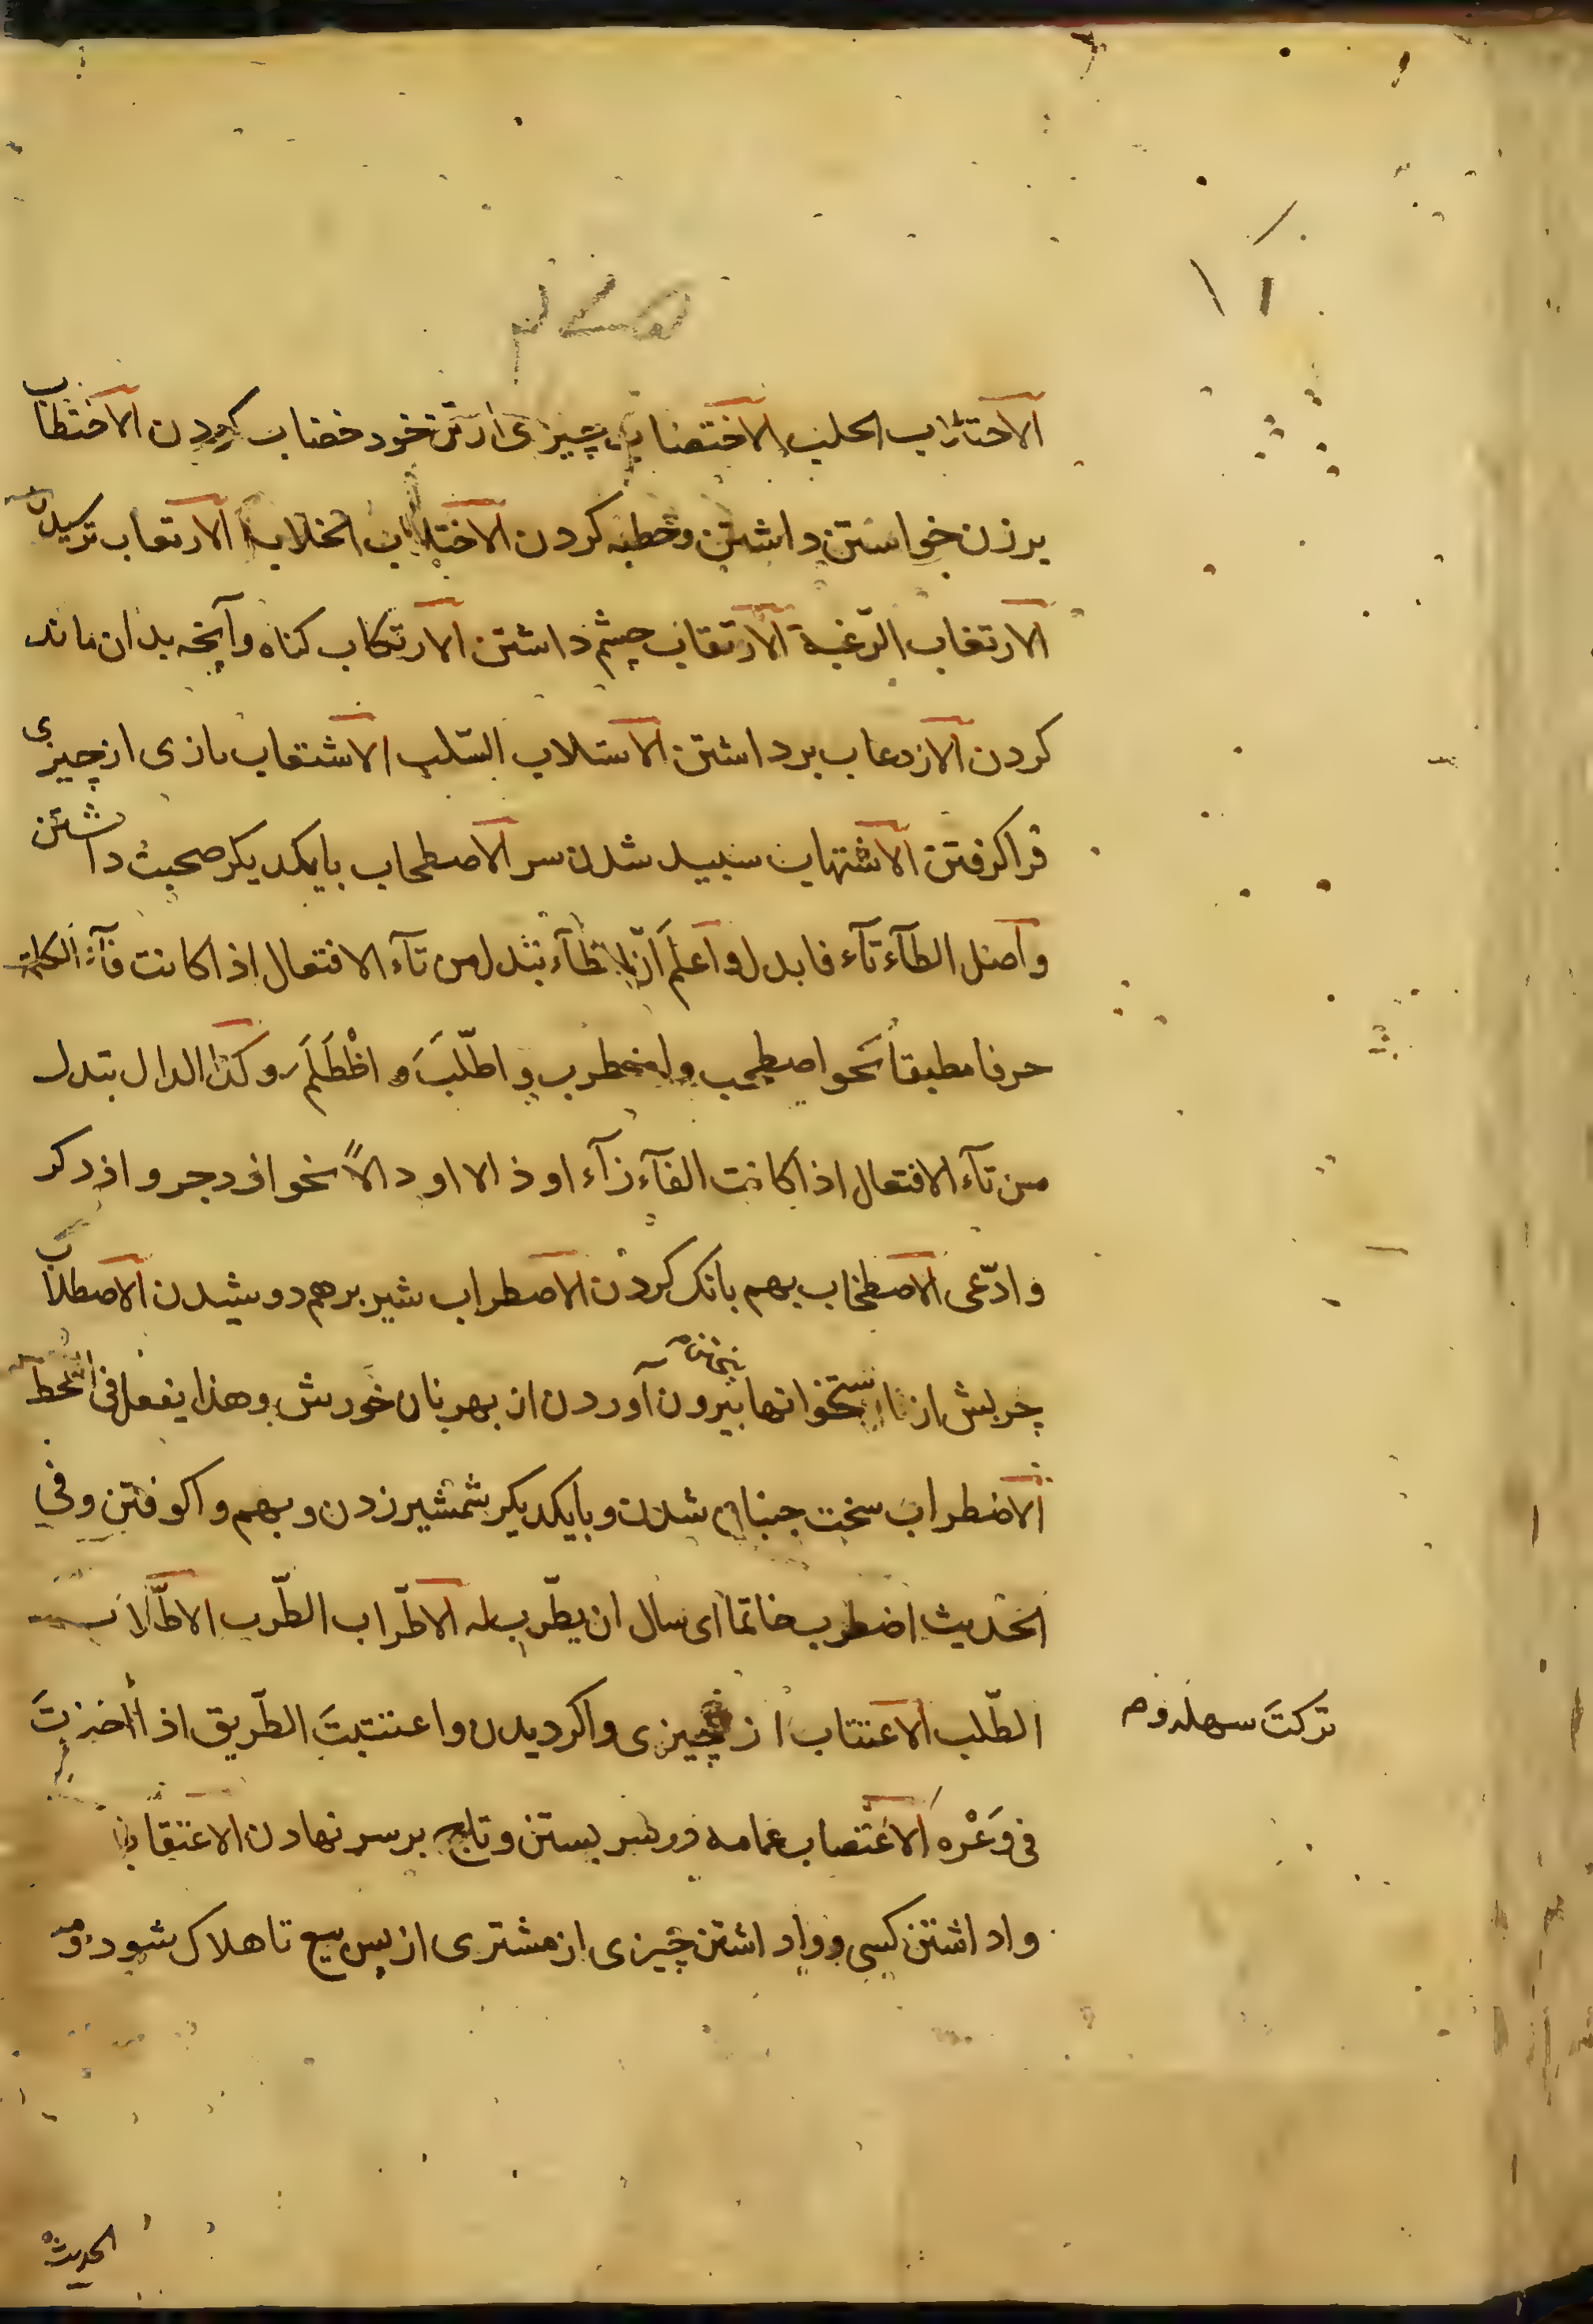 الاختضاب چیزی از تن خود خضاب کردن الاختطاب
بر زن خواستن داشتن و خطبه کردن الاختلاب الخلاب الارتعاب ترسیدن
الارتغاب الرّغبة الارتقاب چشم داشتن الارتکاب کناه وآنچه بدان ماند
کردن الازدعاب برداشتن الاستلاب السّلب الاشتعاب بازی از چیزی
فراکرفتن الاشتهاب سبید شدن سر الاصطحاب بایکدیکر صحبت داشتن
واصل الطآء تآء فابدل واعلَم انّ الطآء تبدل من تآء الافتعال اذا کانت فآء الکلمة
حرفا مطبقا نحو اصطحب واضطرب واطّلبَ واظْطَلَمَ وکذا الدال تبدل
من تآء الافتعال اذا کانت الفآء زآء او ذالا او دالاً نحو ازدجر واذدکر
وادّعی الاصطخاب بهم بانک کردن الاصطراب شیر برهم دوشیدن الاصطلاب
چربش از استخوانها بیرون آوردن از بهر نان خورش وهذا یفعل فی القحط
الاضطراب سخت جنبان شدن وبایکدیکر شمشیر زدن وبهم واکوفتن وفی
الحدیث اضطرب خاتما ای سال ان یضرب له الاطّراب الطّرب الاطّلاب
الطّلب الاعتتاب از چیزی واکردیدن واعتتبتَ الطّریق اذا اخذتَ
ترکتَ سهله وم
فی وَعْره الاعتصاب عمامه در سر بستن وتاج بر سر نهادن الاعتقاب
واداشتن کسی وواداشتن چیزی از مشتری از پس بیع تا هلاک شود و
الحدیث